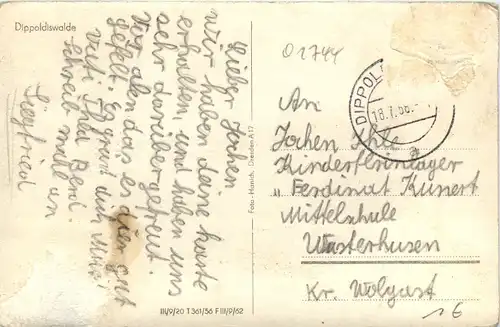 Dippoldiswalde
Lieber Jochen
wir haben deine Karte
erhalten, und haben uns
sehr darüber gefreut.
Vor allen das es dir gut
gefält. Es grüst dich Mutti
Vati Ilka Bernd.
Schreib mall an
Siegfried
Foto-Hanich, Dresden A 17
III/9/20 T 361/56 F III/9/62
01744
DIPPOL
18.7.56.
a
An
Jochen Ihle
Kinderferienlager
"Ferdinat Kunert
Mittelschule
Wusterhusen
Kr. Wolgast
1€